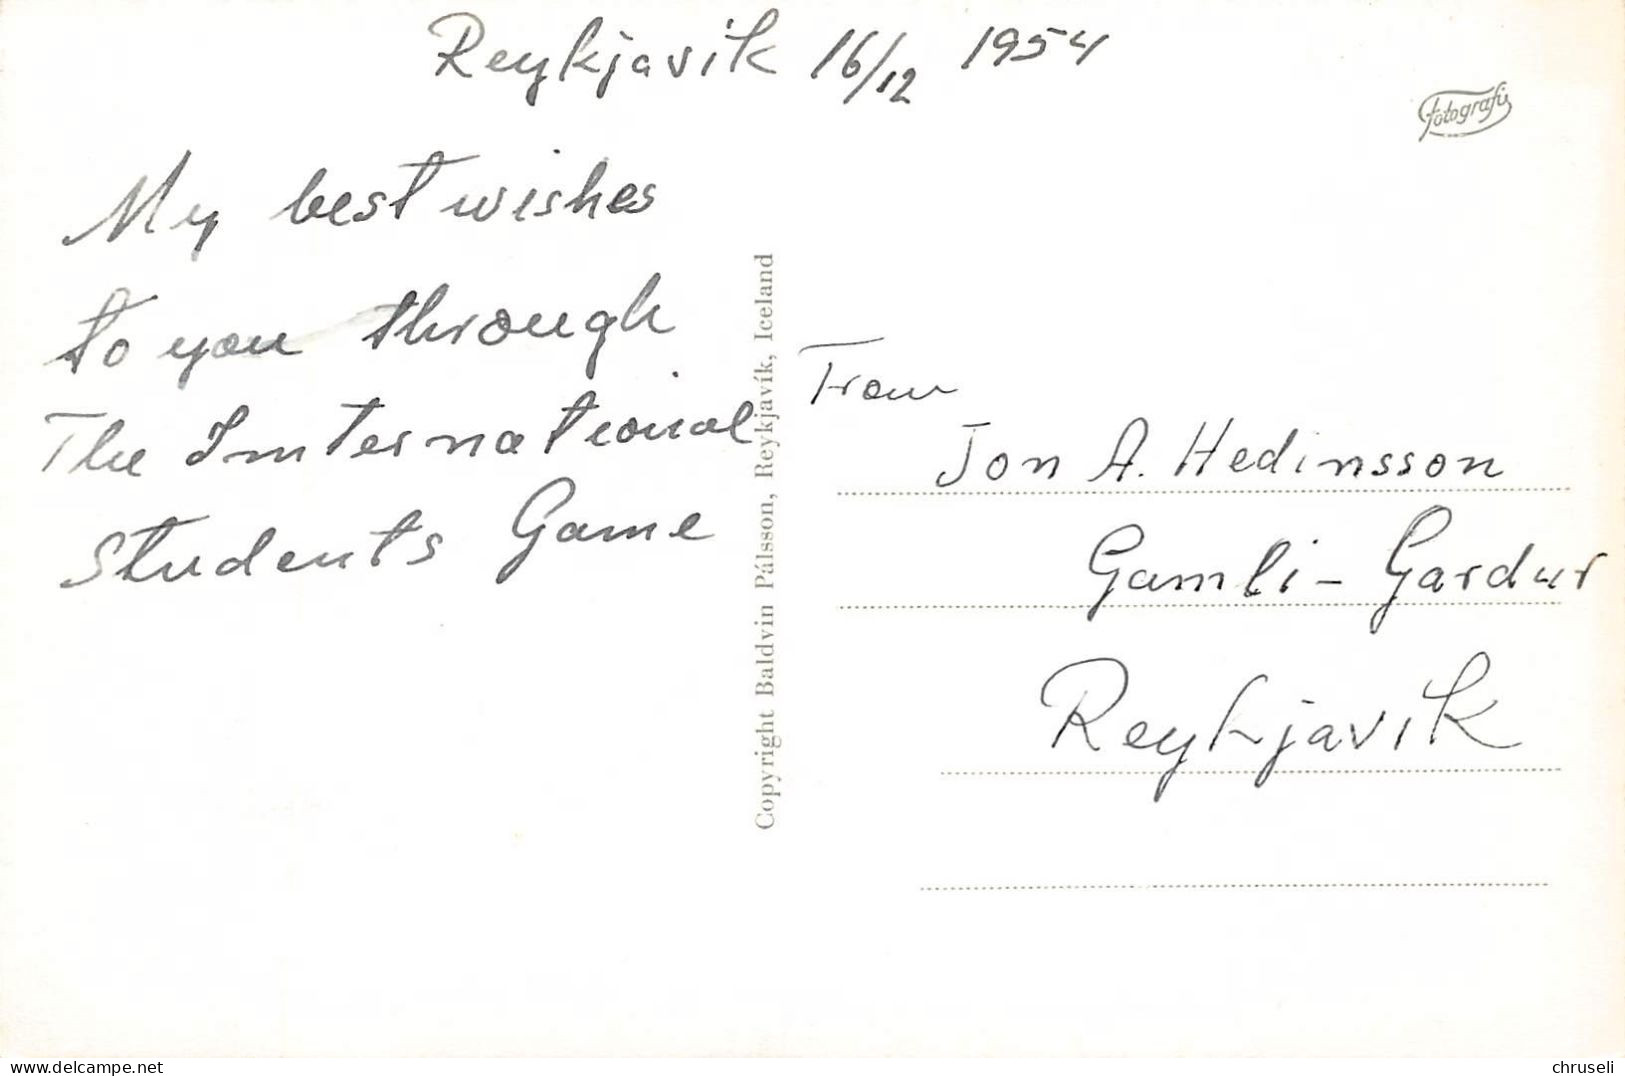 Reykjavik 16/12 1954
fotografia
My best wishes
to you through
The Imternational
Students Game
Copyright Baldvin Pálsson, Reykjavík, Iceland
From
Jon A. Hedinsson
Gamli-Gardur
Reykjavik
chruseli